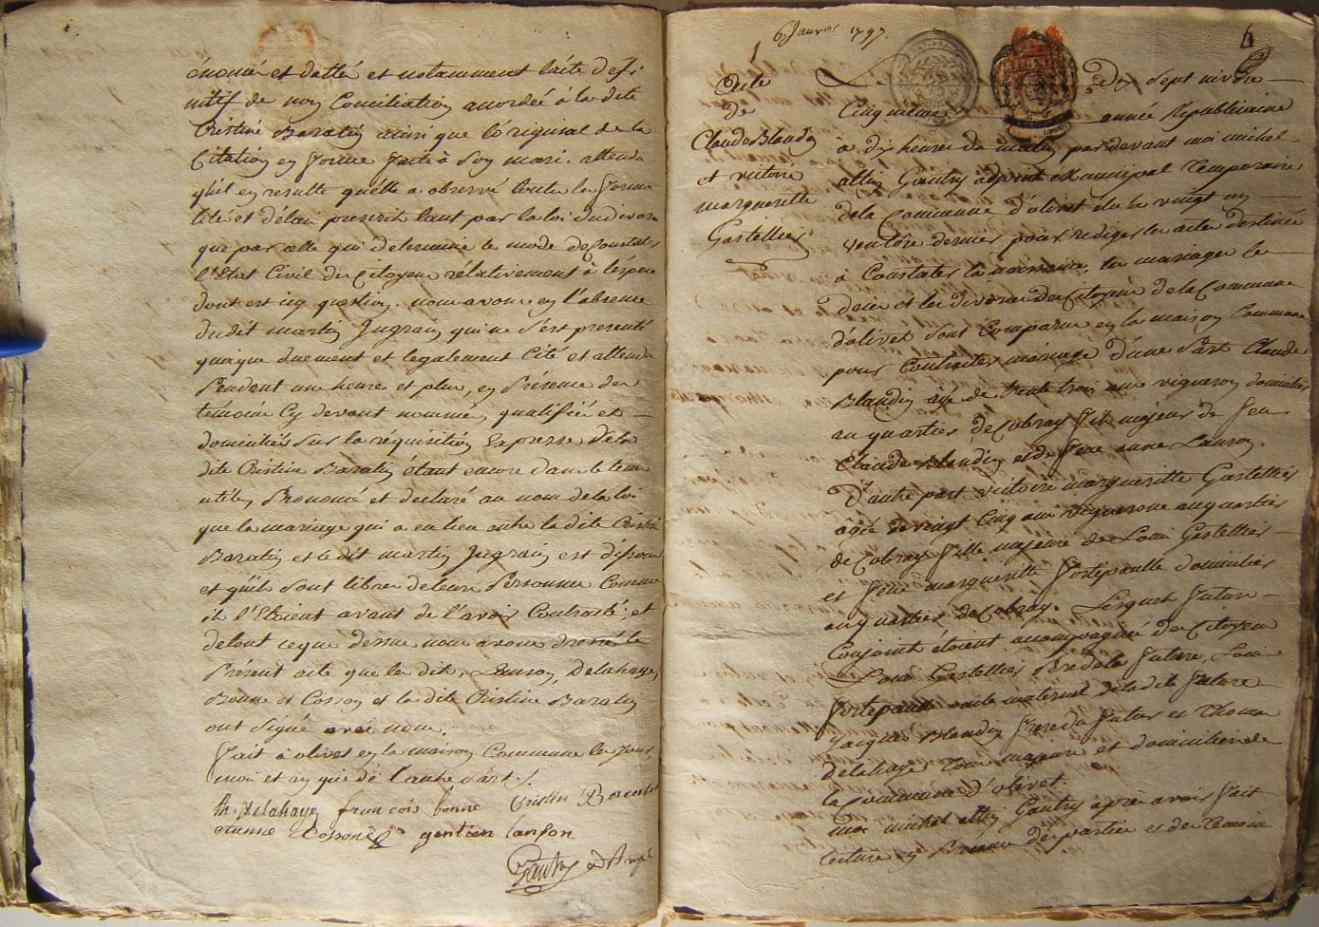 énoncé et datté et notamment l'acte defi-
nitif de non Conciliation accordée à la dite
Cristine Baratin ainsi que l'original de la
Citation en forme faite à son mari. attendu
qu'il en resulte qu'elle a observé toute les forma
lités et délais prescrit tant par la loi du divorce
que par celle qui determine le mode de Constater
l'Etat Civil des Citoyens rélativement à l'espece
dont est icy question. nous avons en l'absence
dudit martin Jugrain qui ne s'est presenté
quoique duement et legalement Cité et attendu
Pendent une heure et plus, en Présence des
témoins Cy devant nommés, qualifiés et
domiciliés sur la réquisition Expresse de la
dite Cristine Baratin étant encore dans le tems
utile, Prononcé et declaré au nom de la loi
que le mariage qui a eu lieu entre la dite Cristine
Baratin et le dit martin Jugrain est dissous
et qu'ils sont libres de leurs Personnes Comme
ils l'Etoient avant de l'avoir Contracté; et
de tout ce que dessus nous avons dressé le
Présent acte que les dits Lanson, Delahaye,
Bonne et Cosson et la dite Cristine Baratin
ont signé avec nous.
Fait à olivet en la maison Commune les jour,
mois et an que de l'autre part.
th. delahaye françois bonne Cristin Barat
etienne Cosson gentien lanson
Gautry
6 Janvier 1797.
6
Acte
de
Claude Blandin
et victoire
marguerite
Gastellier
dix sept nivôse
Cinquieme année Républicaine
à dix heures du matin, par devant moi michel
Gautry adjoint Municipal Temporaire
de la Commune d'olivet élu le vingt un
ventôse dernier pour rediger les actes destinés
à Constater la naissance, les mariages le
deces et les divorces des Citoyens de la Commune
d'olivet sont Comparus en la maison Commune
pour Contracter mariage d'une Part Claude
Blandin agé de trente trois ans vigneron domicilié
au quartier de Cobray fils majeur de feu
Claude Blandin et de feue anne Lanson.
D'autre part victoire marguerite Gastellier
agée de vingt Cinq ans vigneronne au quartier
de Cobray fille majeure de Louis Gastellier
et feue marguerite fortepaulle domiciliés
au quartier de Cobray. Lesquels futurs
Conjoints étoient accompagnés des Citoyens
Louis Gastellier Pere de la future, Louis
fortepaulle oncle maternel de la dite future
Jacques Blandin frere du futur et Thomas
delahaye Tous majeurs et domiciliés de
la Commune d'olivet
Moi michel Gautry après avoir fait
lecture en Presence des parties et des Temoins